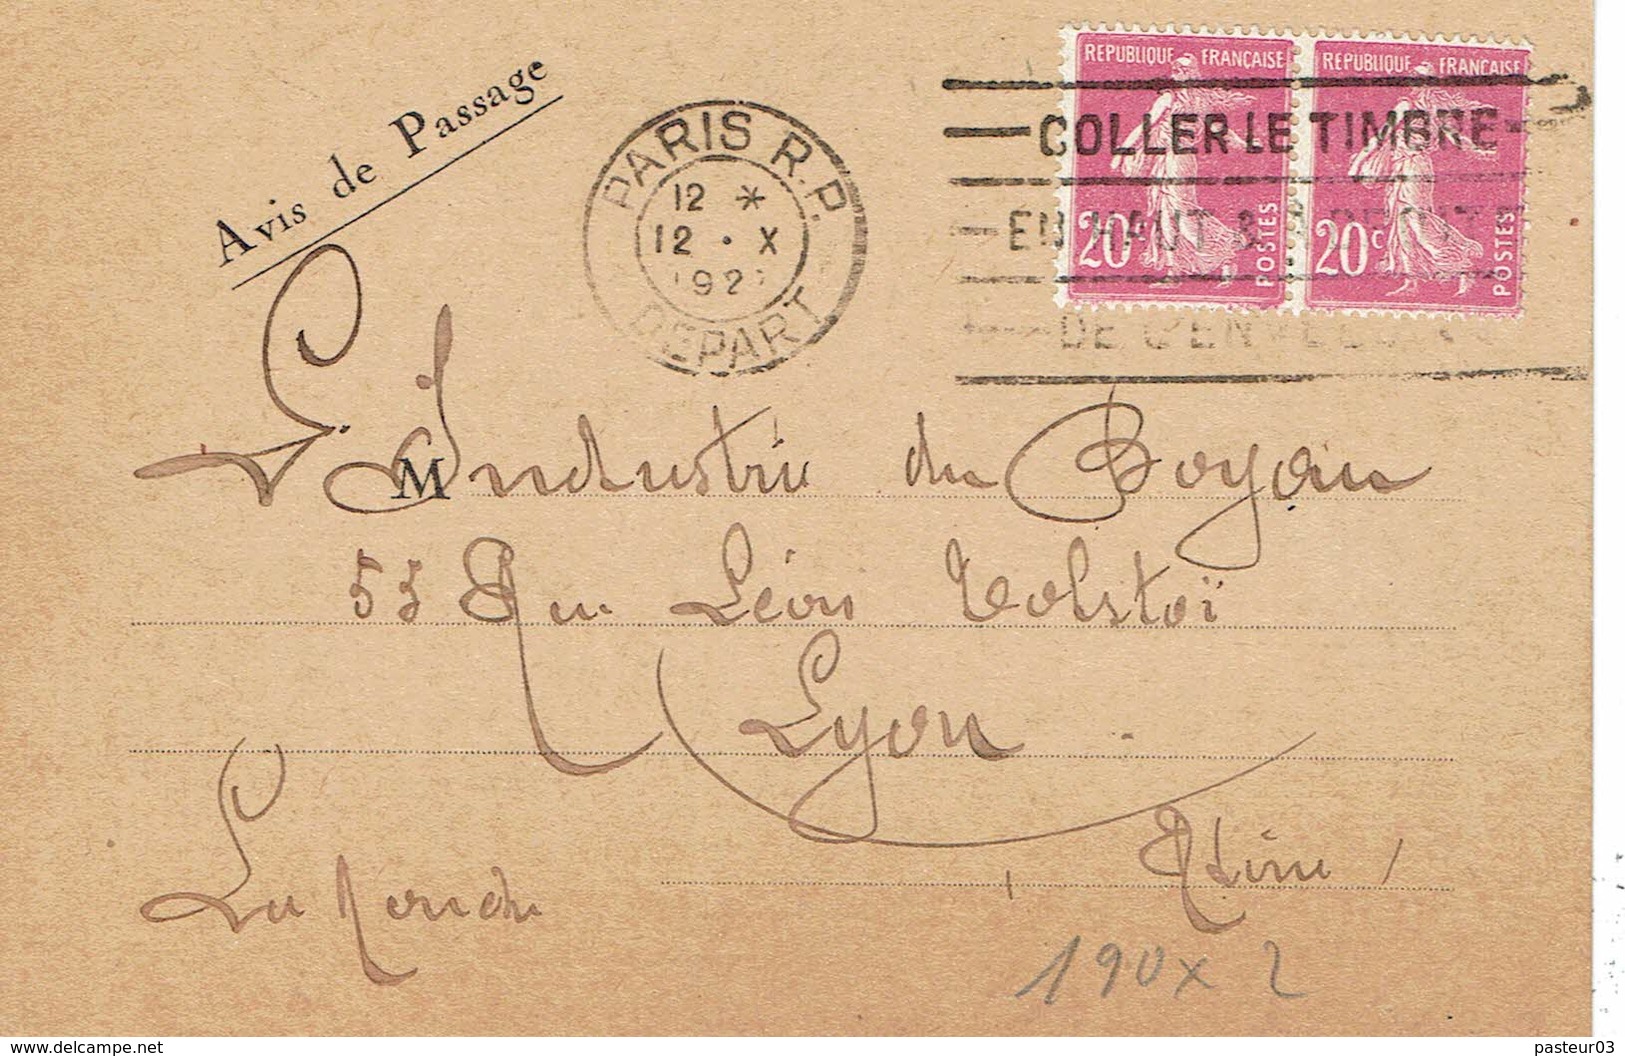 Avis de Passage
PARIS R.P.
12 *
12 . X
192
DEPART
REPUBLIQUE FRANÇAISE
20c POSTES
REPUBLIQUE FRANÇAISE
20c POSTES
COLLER LE TIMBRE
EN HAUT & A DROITE
DE L'ENVELOPPE
M
L'Industrie du Boyau
55 Rue Léon Tolstoï
Lyon
Rhône
La
190 x 2
www.delcampe.net
pasteur03